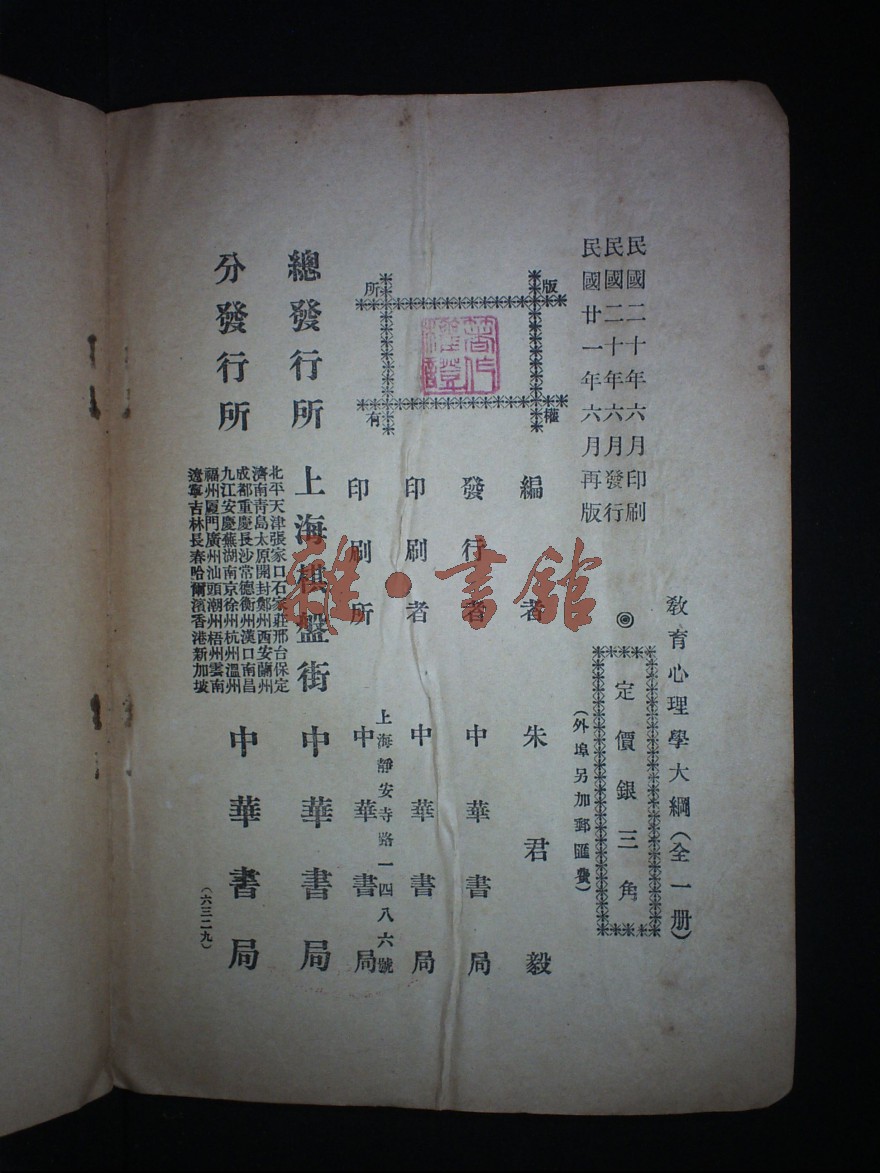 民國二十年六月印刷
民國二十年六月發行
民國廿一年六月再版
教育心理學大綱(全一册)
◎
定價銀三角
(外埠另加郵匯費)
版權所有
著作權證
編者 朱君毅
發行者 中華書局
印刷者 中華書局
上海靜安寺路一四八六號
印刷所 中華書局
總發行所 上海棋盤街 中華書局
分發行所 中華書局
北平天津張家口石家莊邢台保定
濟南青島太原開封鄭州西安蘭州
成都重慶長沙常德衡州漢口南昌
九江安慶蕪湖南京徐州杭州溫州
福州廈門廣州汕頭潮州梧州雲南
遼寧吉林長春哈爾濱香港新加坡
(六三二九)
雜·書館